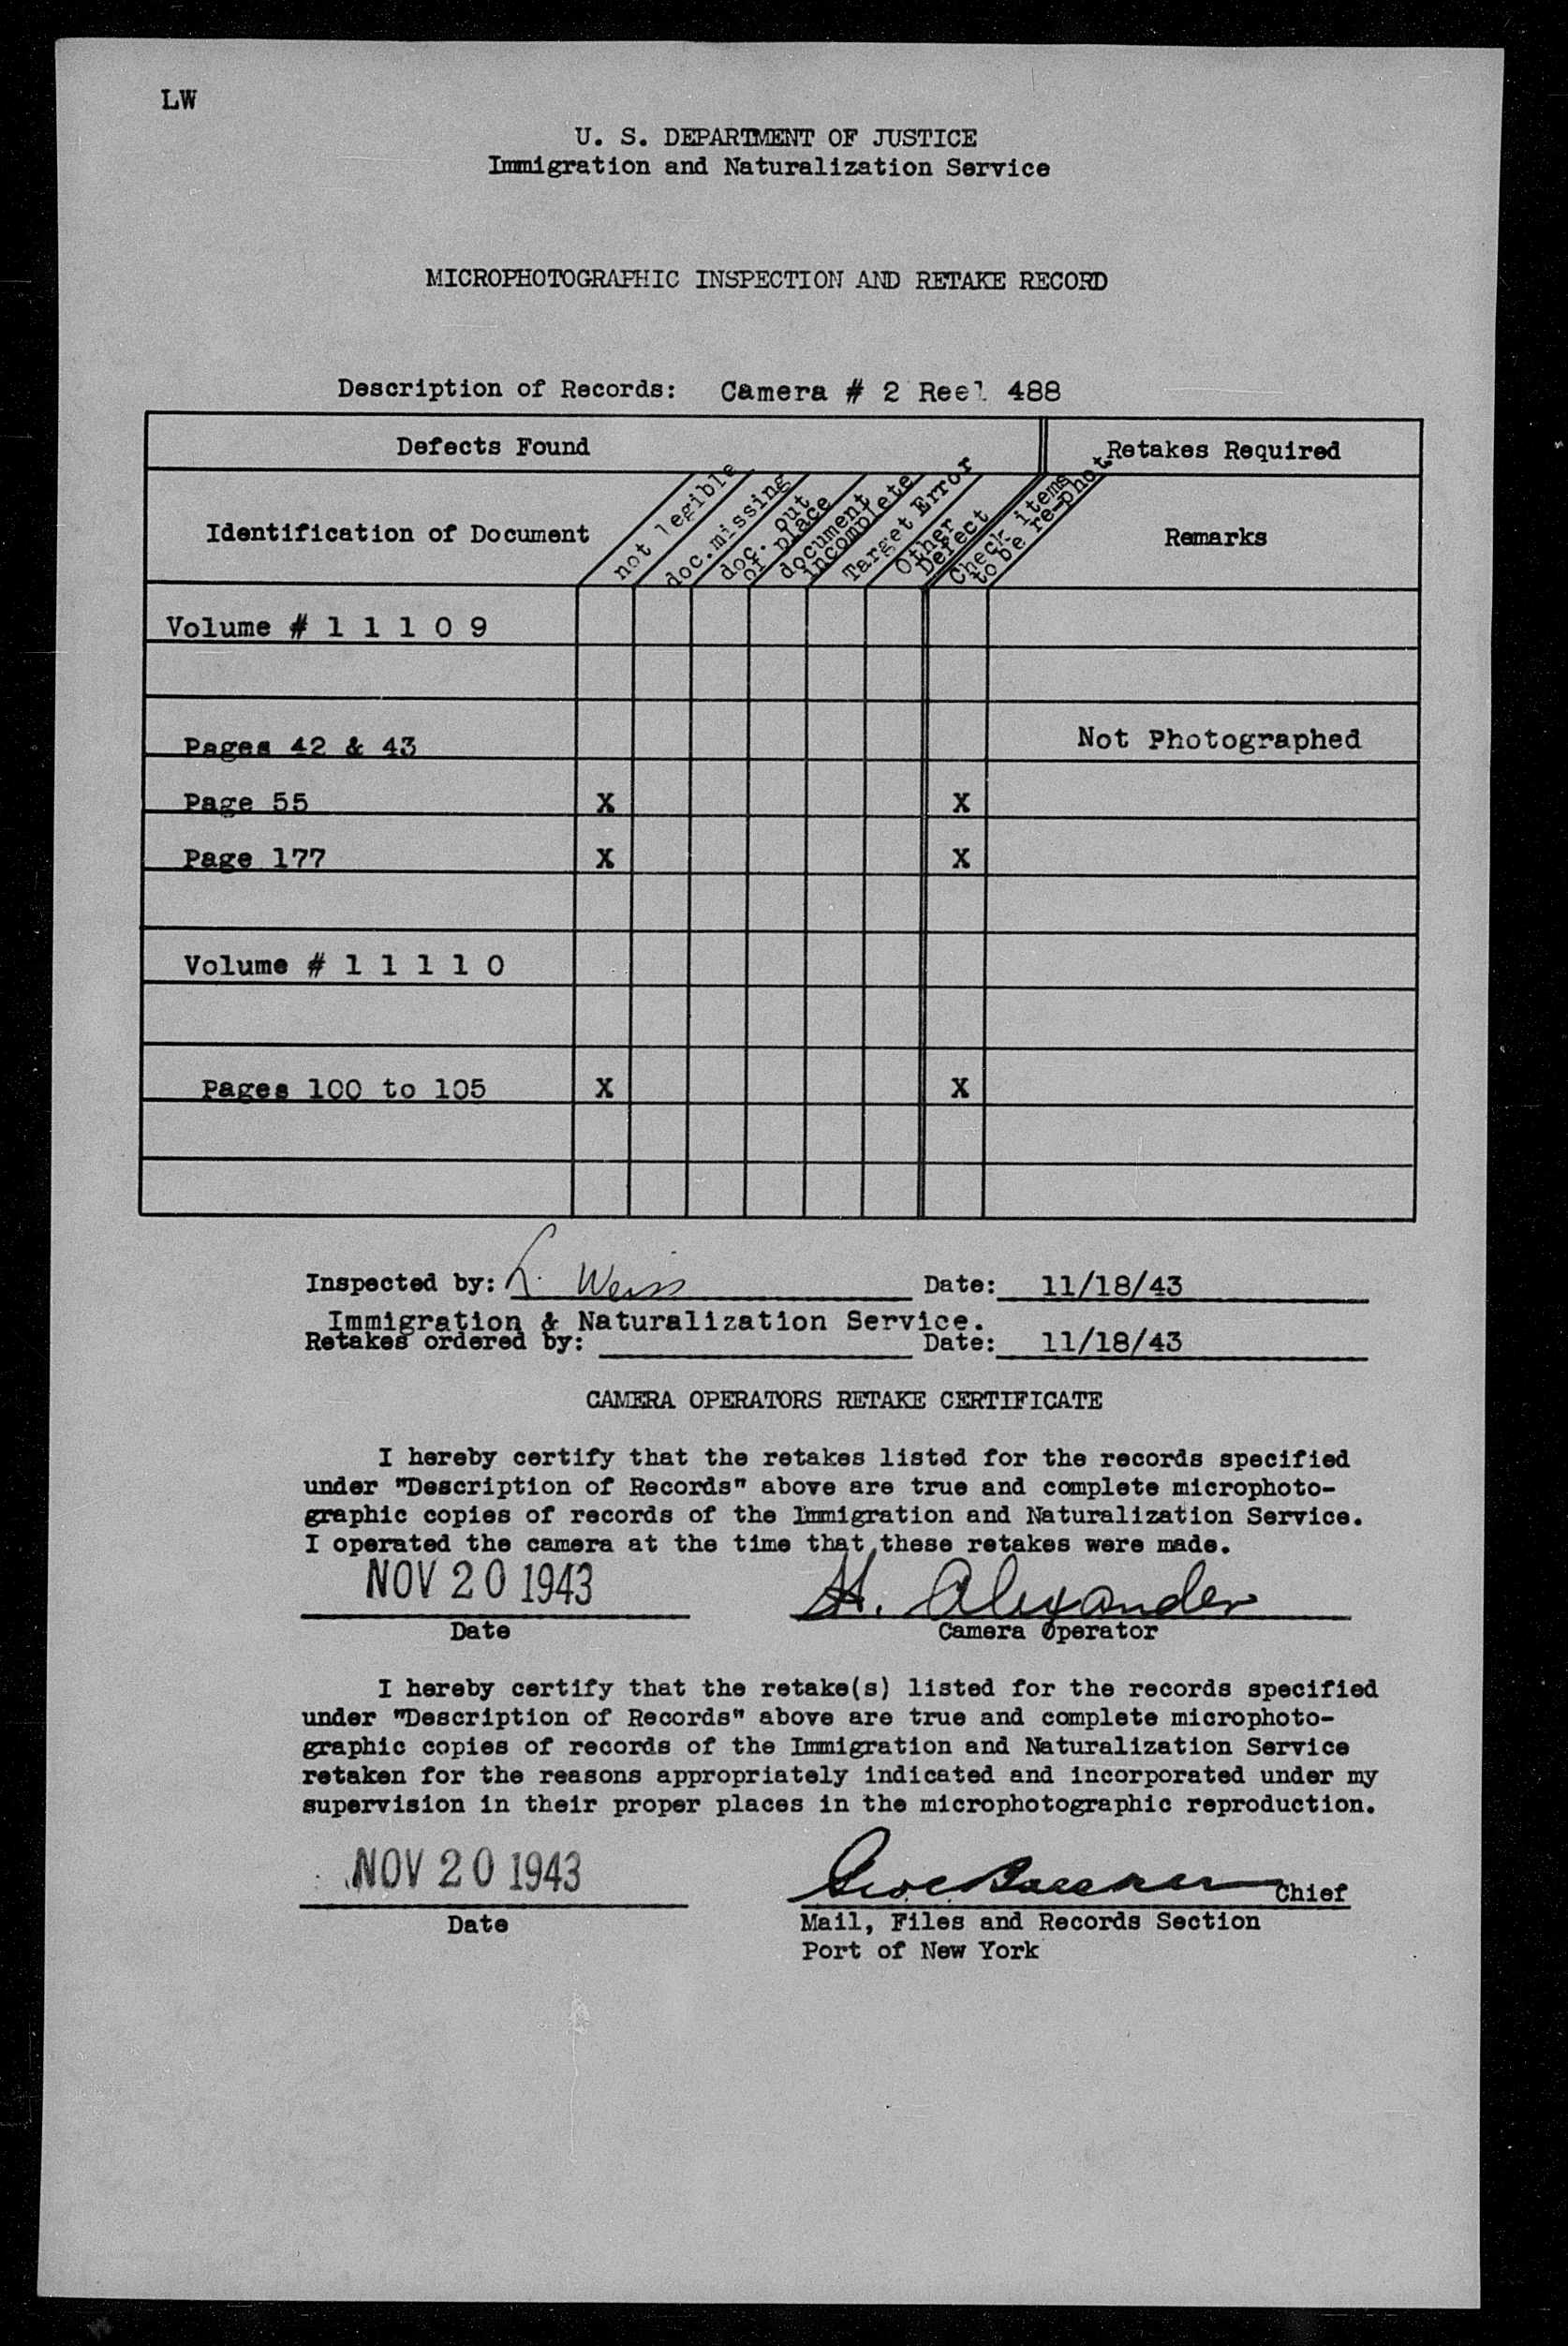 LW
U. S. DEPARTMENT OF JUSTICE
Immigration and Naturalization Service
MICROPHOTOGRAPHIC INSPECTION AND RETAKE RECORD
Description of Records: Camera # 2 Reel 488
Defects Found
Retakes Required
Identification of Document
not legible
doc. missing
doc. out
of place
document
incomplete
Target Error
Other
Defect
Check items
to be re-phot
Remarks
Volume # 1 1 1 0 9
Pages 42 & 43 Not Photographed
Page 55 X X
Page 177 X X
Volume # 1 1 1 1 0
Pages 100 to 105 X X
Inspected by: L. Weiss Date: 11/18/43
Immigration & Naturalization Service.
Retakes ordered by: Date: 11/18/43
CAMERA OPERATORS RETAKE CERTIFICATE
I hereby certify that the retakes listed for the records specified
under "Description of Records" above are true and complete microphoto-
graphic copies of records of the Immigration and Naturalization Service.
I operated the camera at the time that these retakes were made.
NOV 20 1943 H. Alexander
Date Camera Operator
I hereby certify that the retake(s) listed for the records specified
under "Description of Records" above are true and complete microphoto-
graphic copies of records of the Immigration and Naturalization Service
retaken for the reasons appropriately indicated and incorporated under my
supervision in their proper places in the microphotographic reproduction.
NOV 20 1943 Chief
Date Mail, Files and Records Section
Port of New York